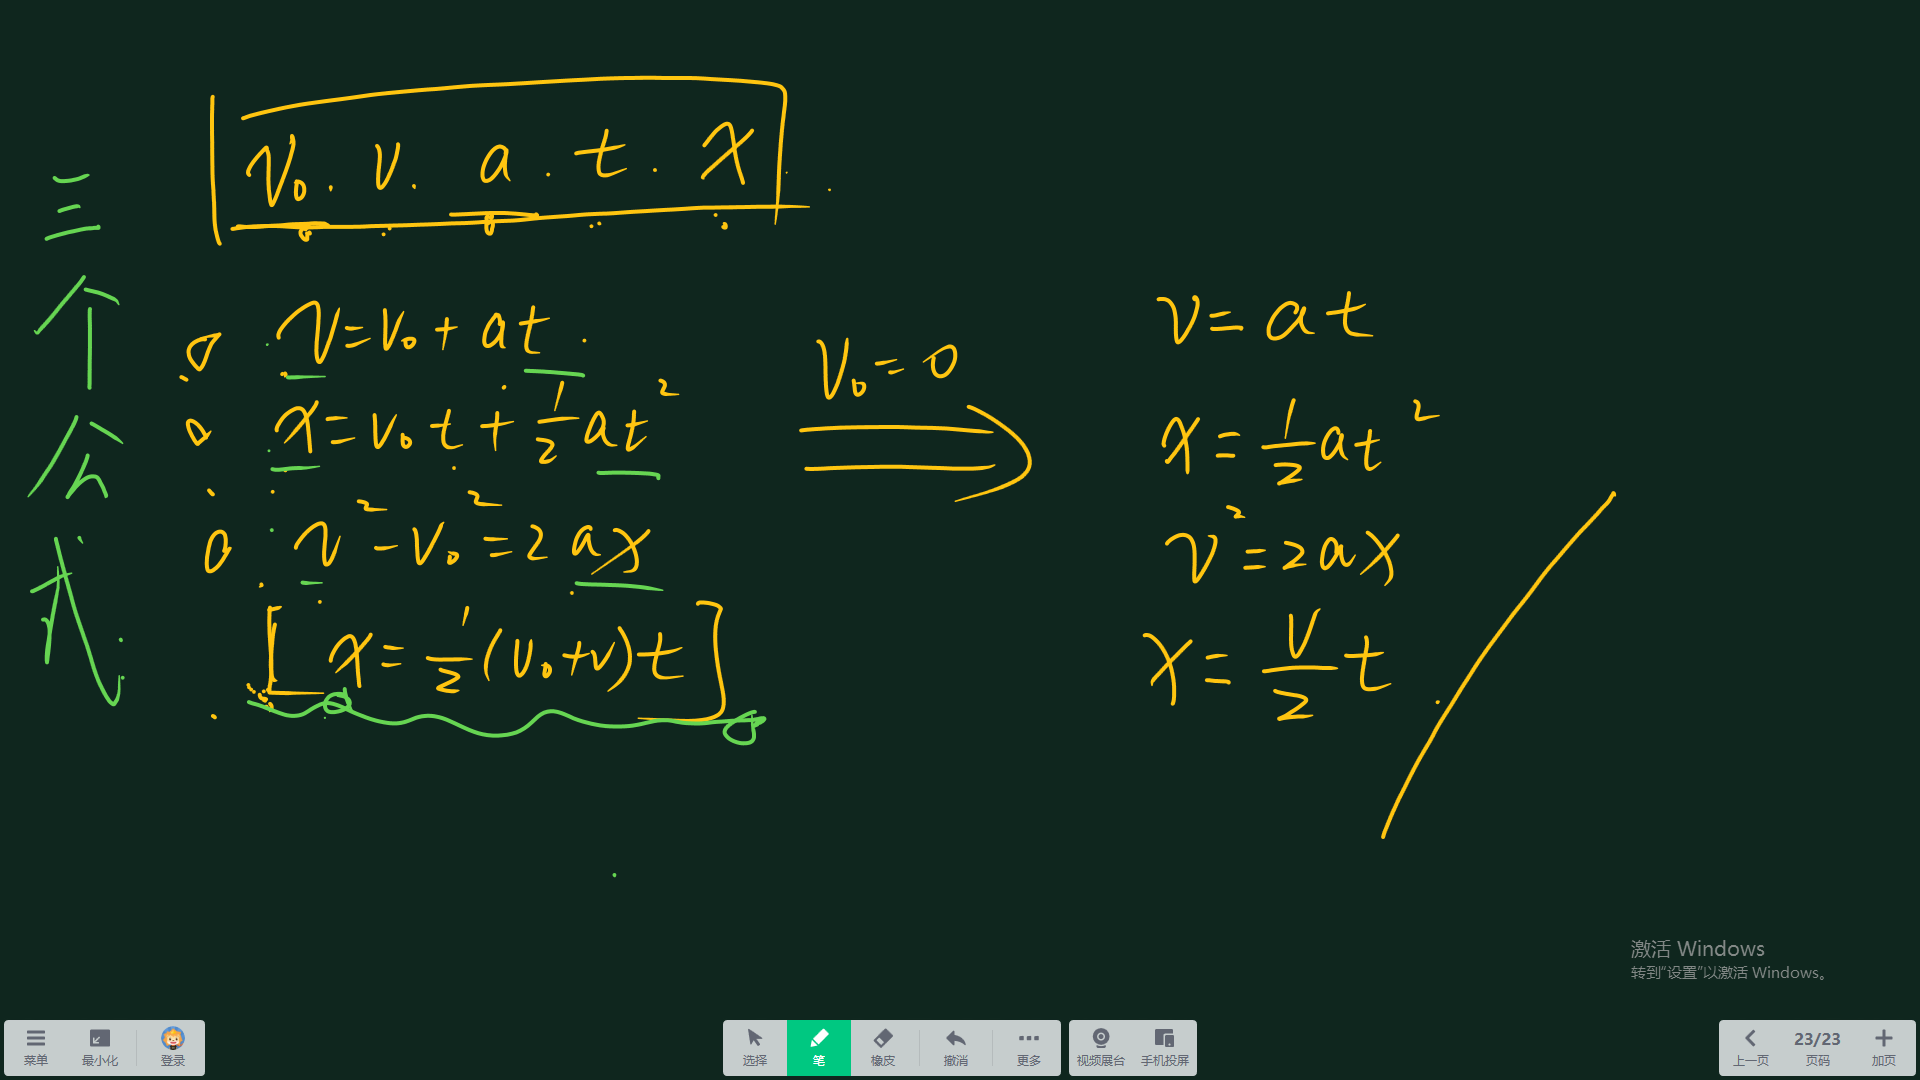 三个公式
v₀. v. a. t. x
v=v₀+at
x=v₀t+½at²
v²-v₀²=2ax
[x=½(v₀+v)t]
v₀=0
v=at
x=½at²
v²=2ax
x=v/2 t
激活 Windows
转到“设置”以激活 Windows。
菜单
最小化
登录
选择
笔
橡皮
撤消
更多
视频展台
手机投屏
上一页
23/23
页码
加页